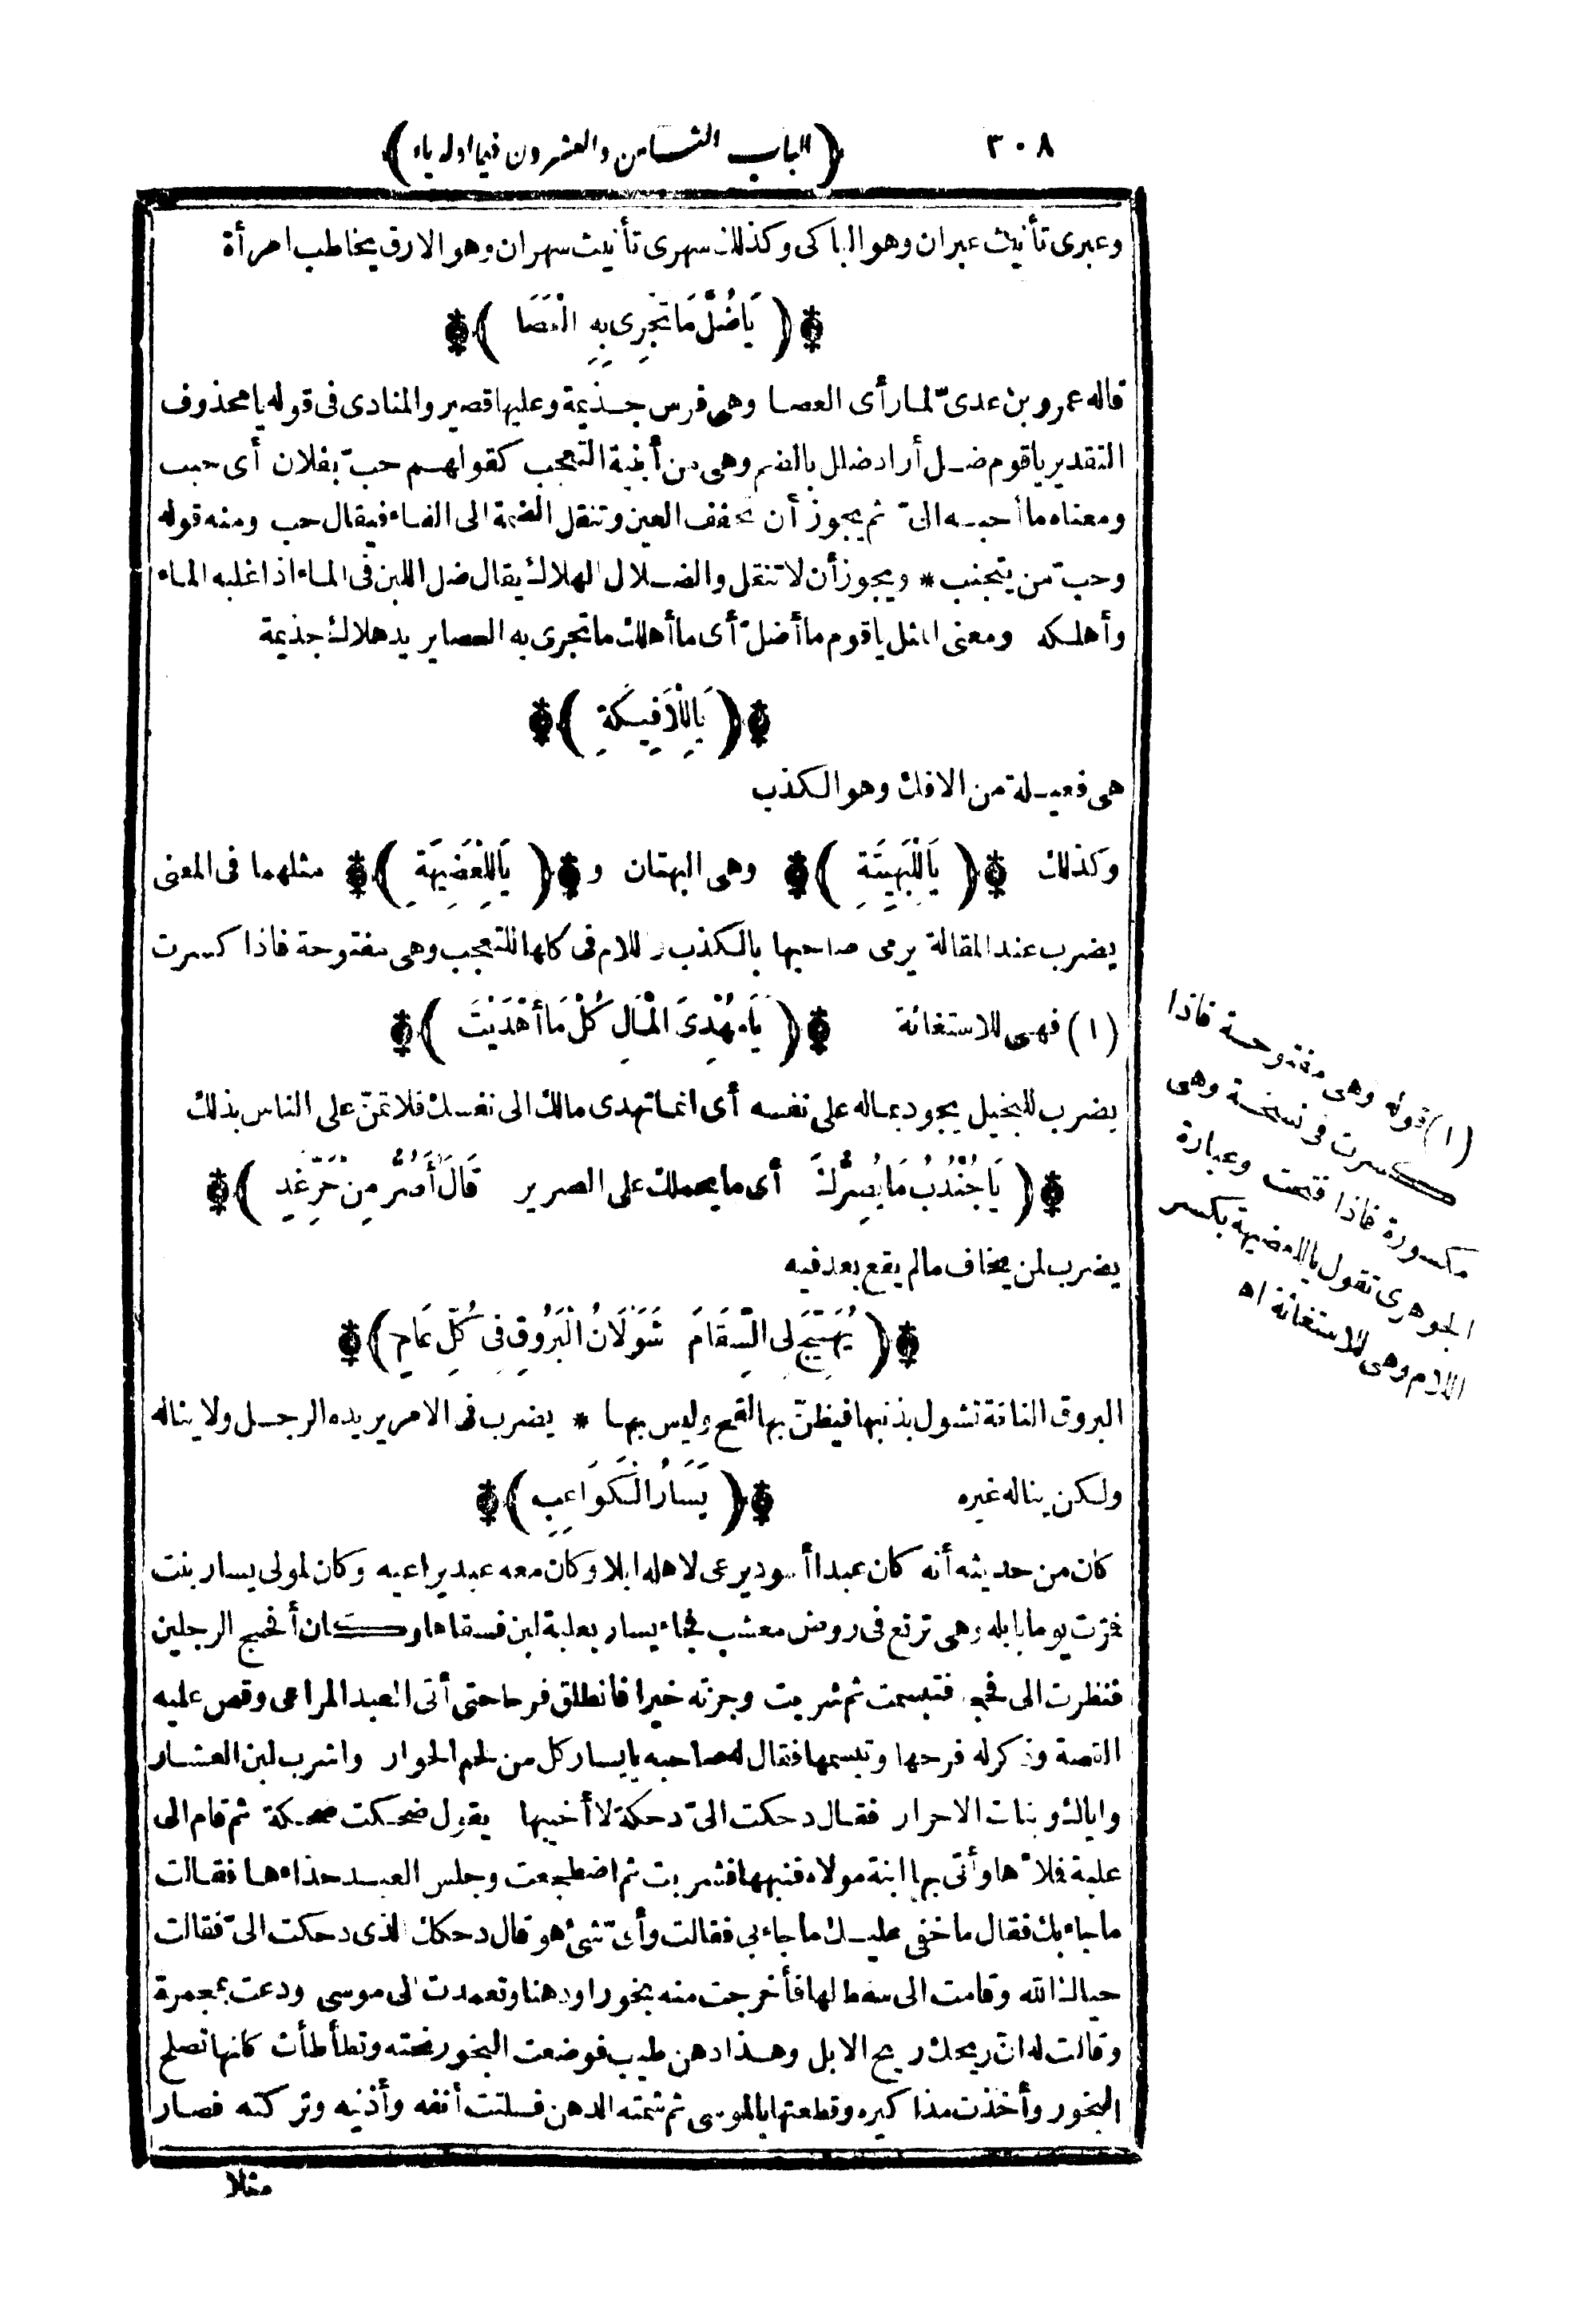 ٣٠٨
﴿الباب الثامن والعشرون فيما اوله ياء﴾
وعبرى تأنيث عبران وهو الباكى وكذلك سهرى تأنيث سهران وهو الارق يخاطب امرأة
﴿ يَاضُلَّ مَا تَجْرِى بِهِ الْعَصَا ﴾
قاله عمرو بن عدىّ لما رأى العصا وهى فرس جذيمة وعليها قصير والمنادى فى قوله يا محذوف
التقدير يا قوم ضل أراد ضلل بالضم وهى من أبنية التعجب كقولهم حبّ بفلان أى حبب
ومعناه ما أحبه الىّ ثم يجوز أن تخفف العين وتنقل الضمة الى الفاء فيقال حب ومنه قوله
وحبّ من يتجنب * ويجوز أن لا تنقل والضلال الهلاك يقال ضل اللبن فى الماء اذا غلبه الماء
وأهلكه ومعنى المثل يا قوم ما أضلّ أى ما أهلك ما تجرى به العصا يريد هلاك جذيمة
﴿ يَالِلْأَفِيكَةِ ﴾
هى فعيلة من الافك وهو الكذب
وكذلك ﴿ يَالِلْبَهِيتَةِ ﴾ وهى البهتان و﴿ يَالِلْعَضِيهَةِ ﴾ مثلهما فى المعنى
يضرب عند المقالة يرمى صاحبها بالكذب واللام فى كلها للتعجب وهى مفتوحة فاذا كسرت
(١) فهى للاستغاثة ﴿ يَامُهْدِىَ الْمَالِ كُلْ مَا أَهْدَيْتَ ﴾
يضرب للبخيل يجود بماله على نفسه أى انما تهدى مالك الى نفسك فلا تمنّ على الناس بذلك
﴿ يَا جُنْدُبُ مَا يُصِرُّكَ أى ما يحملك على الصرير قَالَ أَصُرُّ مِنْ حَرِّ غَدٍ ﴾
يضرب لمن يخاف مالم يقع بعد فيه
﴿ يُهَيِّجُ لِى السِّقَامَ شَوَلَانُ الْبَرُوقِ فِى كُلِّ عَامٍ ﴾
البروق الناقة تشول بذنبها فيظنّ بها لقح وليس بها * يضرب فى الامر يريده الرجل ولا يناله
ولكن يناله غيره ﴿ يَسَارُ الْكَوَاعِبِ ﴾
كان من حديثه أنه كان عبدا أسود يرعى لاهله ابلا وكان معه عبد يراعيه وكان لمولى يسار بنت
فمرّت يوما بابله وهى ترتع فى روض معشب فجاء يسار بعلبة لبن فسقاها وكان أفحج الرجلين
فنظرت الى فحجه فتبسمت ثم شربت وجزته خيرا فانطلق فرحا حتى أتى العبد المراعى وقص عليه
القصة وذكر له فرحها وتبسمها فقال له صاحبه يا يسار كل من لحم الحوار واشرب لبن العشار
واياك وبنات الاحرار فقال دحكت الىّ دحكة لا أخيبها يقول ضحكت ضحكة ثم قام الى
علبة فملأها وأتى بها ابنة مولاه فنبهها فشربت ثم اضطجعت وجلس العبد حذاءها فقالت
ما جاء بك فقال ما خفى عليك ما جاء بى فقالت وأىّ شئ هو قال دحكك الذى دحكت الىّ فقالت
حياك الله وقامت الى سفط لها فأخرجت منه بخورا ودهنا وتعمدت الى موسى ودعت بمجمرة
وقالت له انّ ريحك ريح الابل وهذا دهن طيب فوضعت البخور تحته وتطأطأت كانها تصلح
البخور وأخذت مذاكيره وقطعتها بالموسى ثم شمته الدهن فسلتت أنفه وأذنيه وتركته فصار
مثلا
(١) قوله وهى مفتوحة فاذا
كسرت فى نسخة وهى
مكسورة فاذا فتحت وعبارة
الجوهرى تقول ياللعضيهة بكسر
اللام وهى للاستغاثة اه